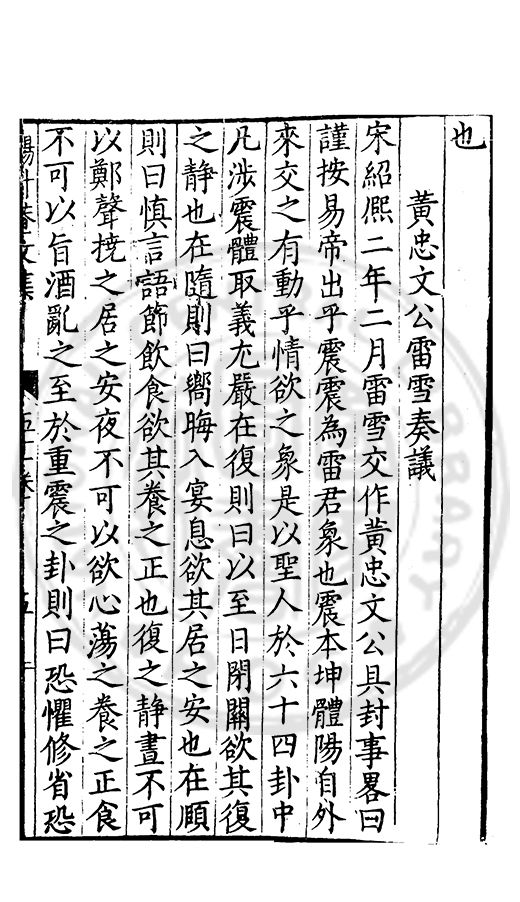 也
黃忠文公雷雪奏議
宋紹熈二年二月雷雪交作黃忠文公具封事畧曰
謹按易帝出乎震震為雷君象也震本坤體陽自外
來交之有動乎情欲之象是以聖人於六十四卦中
凡涉震體取義尤嚴在復則曰以至日閉關欲其復
之静也在隨則曰嚮晦入宴息欲其居之安也在頤
則曰慎言語節飲食欲其養之正也復之静晝不可
以鄭聲撓之居之安夜不可以欲心蕩之養之正食
不可以旨酒亂之至於重震之卦則曰恐懼修省恐